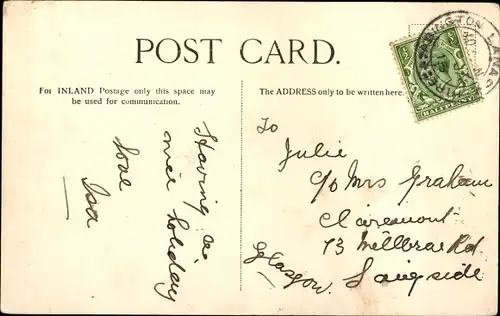 POST CARD.
For INLAND Postage only this space may
be used for communication.
The ADDRESS only to be written here.
Having a
nice holiday
love
Isa
To
Julie
c/o Mrs Graham
Claremont
73 Millbrae Rd.
Langside
Glasgow.
ABINGTON LANAR